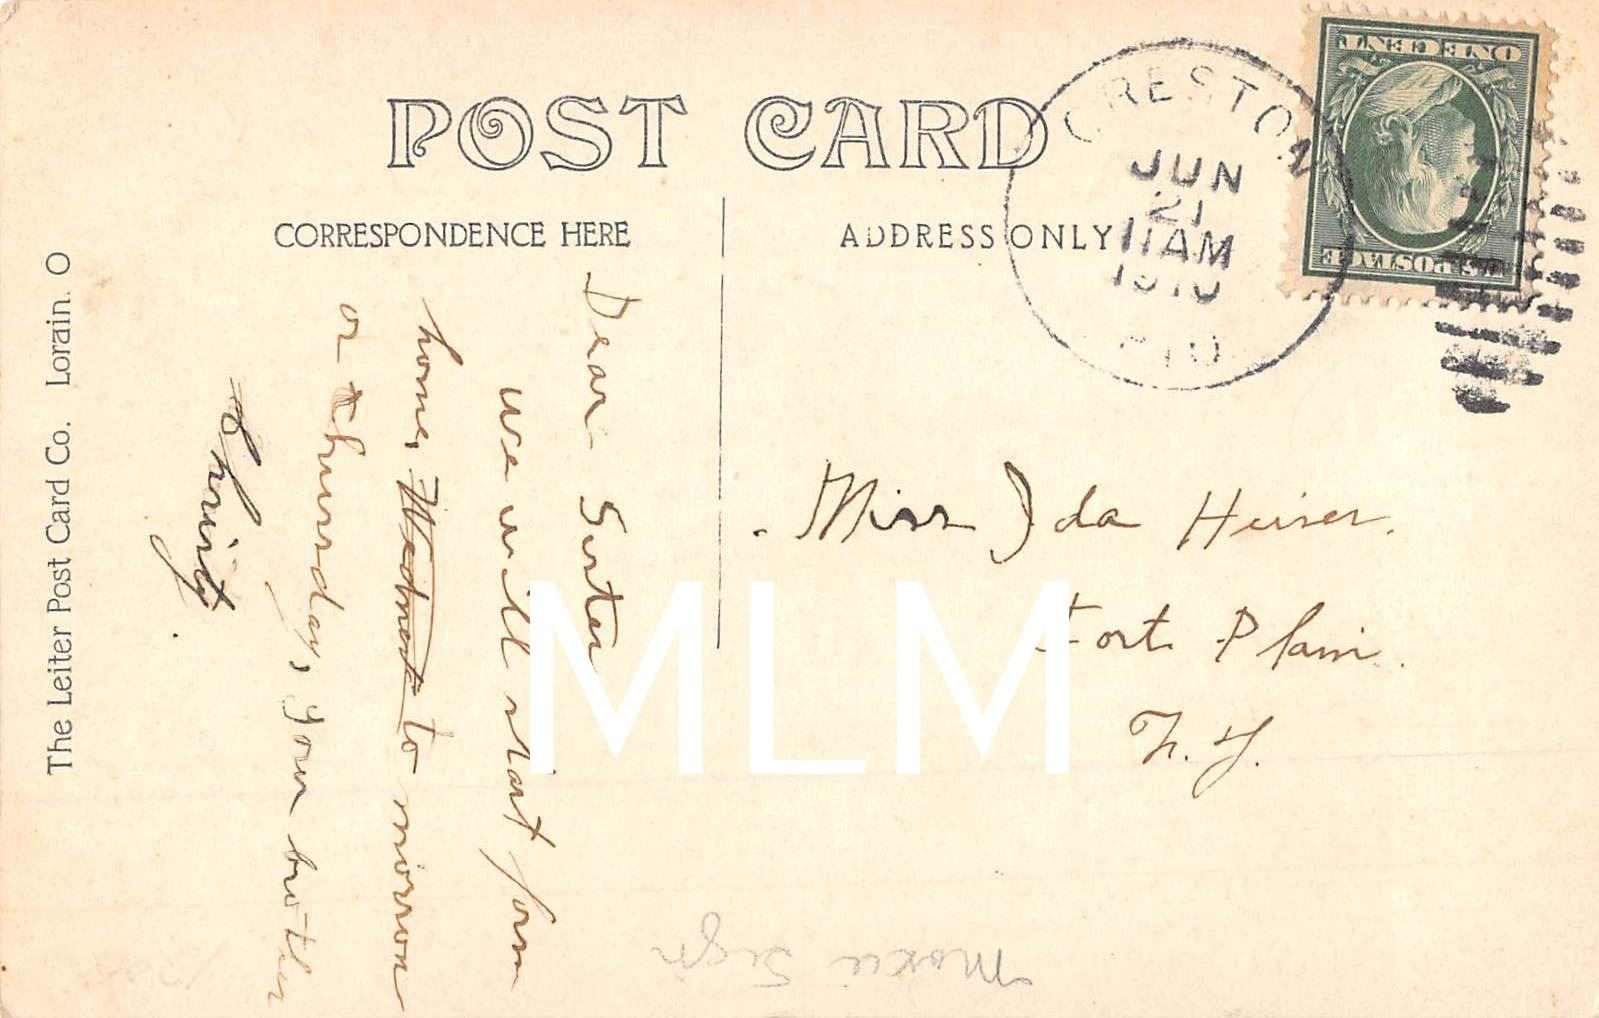 POST CARD
CORRESPONDENCE HERE
ADDRESS ONLY
CRESTON
JUN
21
11 AM
1910
ONE CENT
U.S. POSTAGE
Dear Sister
we will start form
home, Wednest to morrow
or Thursday, your brother
Christ.
Miss Ida Heiser.
Fort Plain.
N.Y.
The Leiter Post Card Co. Lorain. O
MLM
Moxie Sign